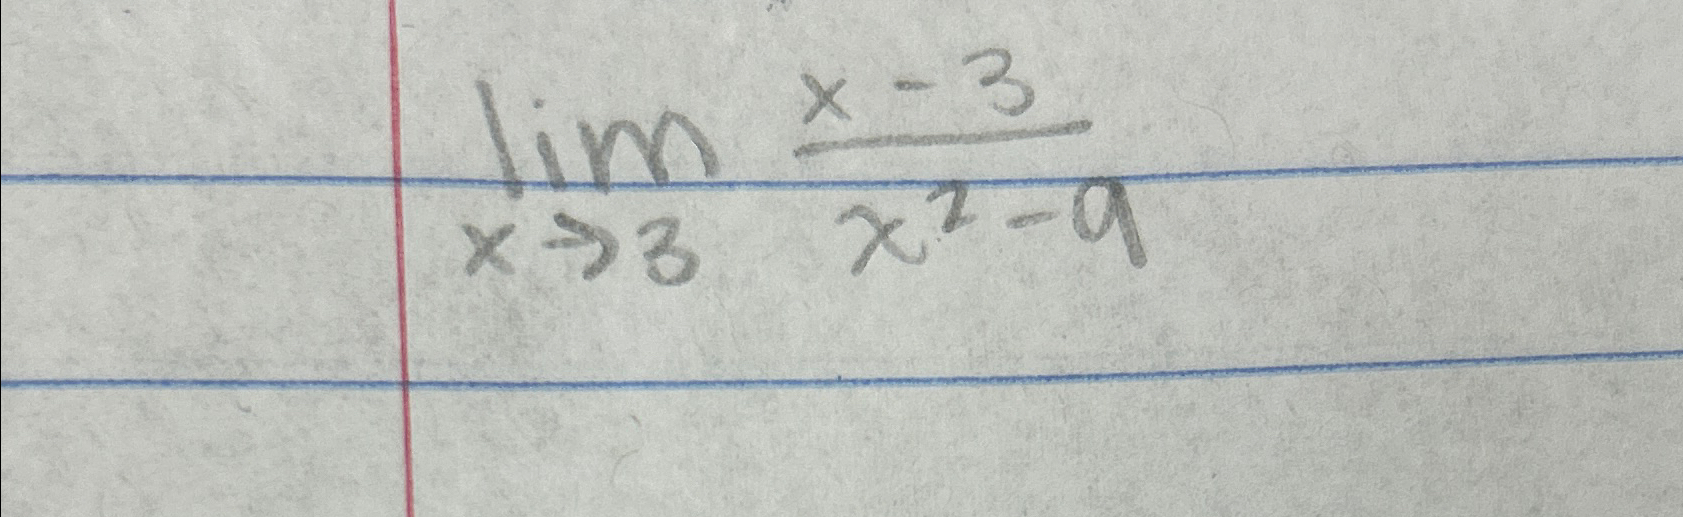 lim x - 3
x → 3 x² - 9